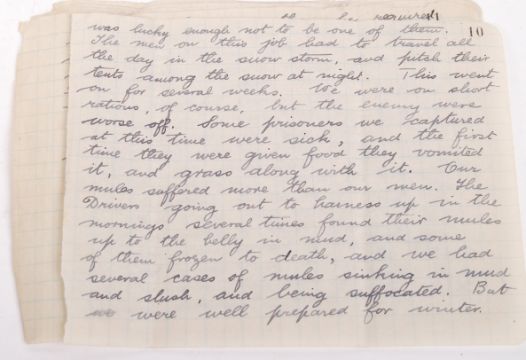 required
10
was lucky enough not to be one of them.
The men on this job had to travel all
the day in the snow storm, and pitch their
tents among the snow at night. This went
on for several weeks. We were on short
rations, of course, but the enemy were
worse off. Some prisoners we captured
at this time were sick, and the first
time they were given food they vomited
it, and grass along with it. Our
mules suffered more than our men. The
Drivers going out to harness up in the
mornings several times found their mules
up to the belly in mud, and some
of them frozen to death, and we had
several cases of mules sinking in mud
and slush, and being suffocated. But
we were well prepared for winter.